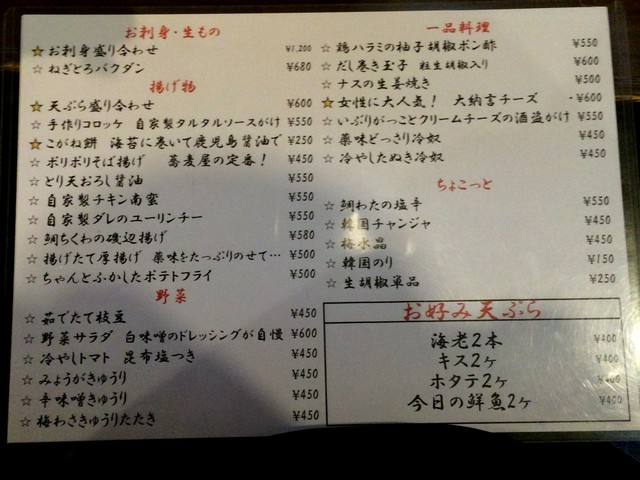 お刺身・生もの
☆お刺身盛り合わせ ¥1,200
☆ねぎとろバクダン ¥680
揚げ物
☆天ぷら盛り合わせ ¥600
☆手作りコロッケ 自家製タルタルソースがけ ¥550
☆こがね餅 海苔に巻いて鹿児島醤油で ¥250
☆ポリポリそば揚げ 蕎麦屋の定番! ¥450
☆とり天おろし醤油 ¥550
☆自家製チキン南蛮 ¥550
☆自家製ダレのユーリンチー ¥550
☆鯛ちくわの磯辺揚げ ¥580
☆揚げたて厚揚げ 薬味をたっぷりのせて… ¥500
☆ちゃんとふかしたポテトフライ ¥500
野菜
☆茹でたて枝豆 ¥450
☆野菜サラダ 白味噌のドレッシングが自慢 ¥600
☆冷やしトマト 昆布塩つき ¥450
☆みょうがきゅうり ¥450
☆辛味噌きゅうり ¥450
☆梅わさきゅうりたたき ¥450
一品料理
☆鶏ハラミの柚子胡椒ポン酢 ¥550
☆だし巻き玉子 粒生胡椒入り ¥600
☆ナスの生姜焼き ¥500
☆女性に大人気! 大納言チーズ ・¥600
☆いぶりがっことクリームチーズの酒盗がけ ¥550
☆薬味どっさり冷奴 ¥450
☆冷やしたぬき冷奴 ¥450
ちょこっと
☆鯛わたの塩辛 ¥550
☆韓国チャンジャ ¥450
☆梅水晶 ¥450
☆韓国のり ¥150
☆生胡椒単品 ¥250
お好み天ぷら
海老2本 ¥400
キス2ヶ ¥400
ホタテ2ヶ ¥400
今日の鮮魚2ヶ ¥400